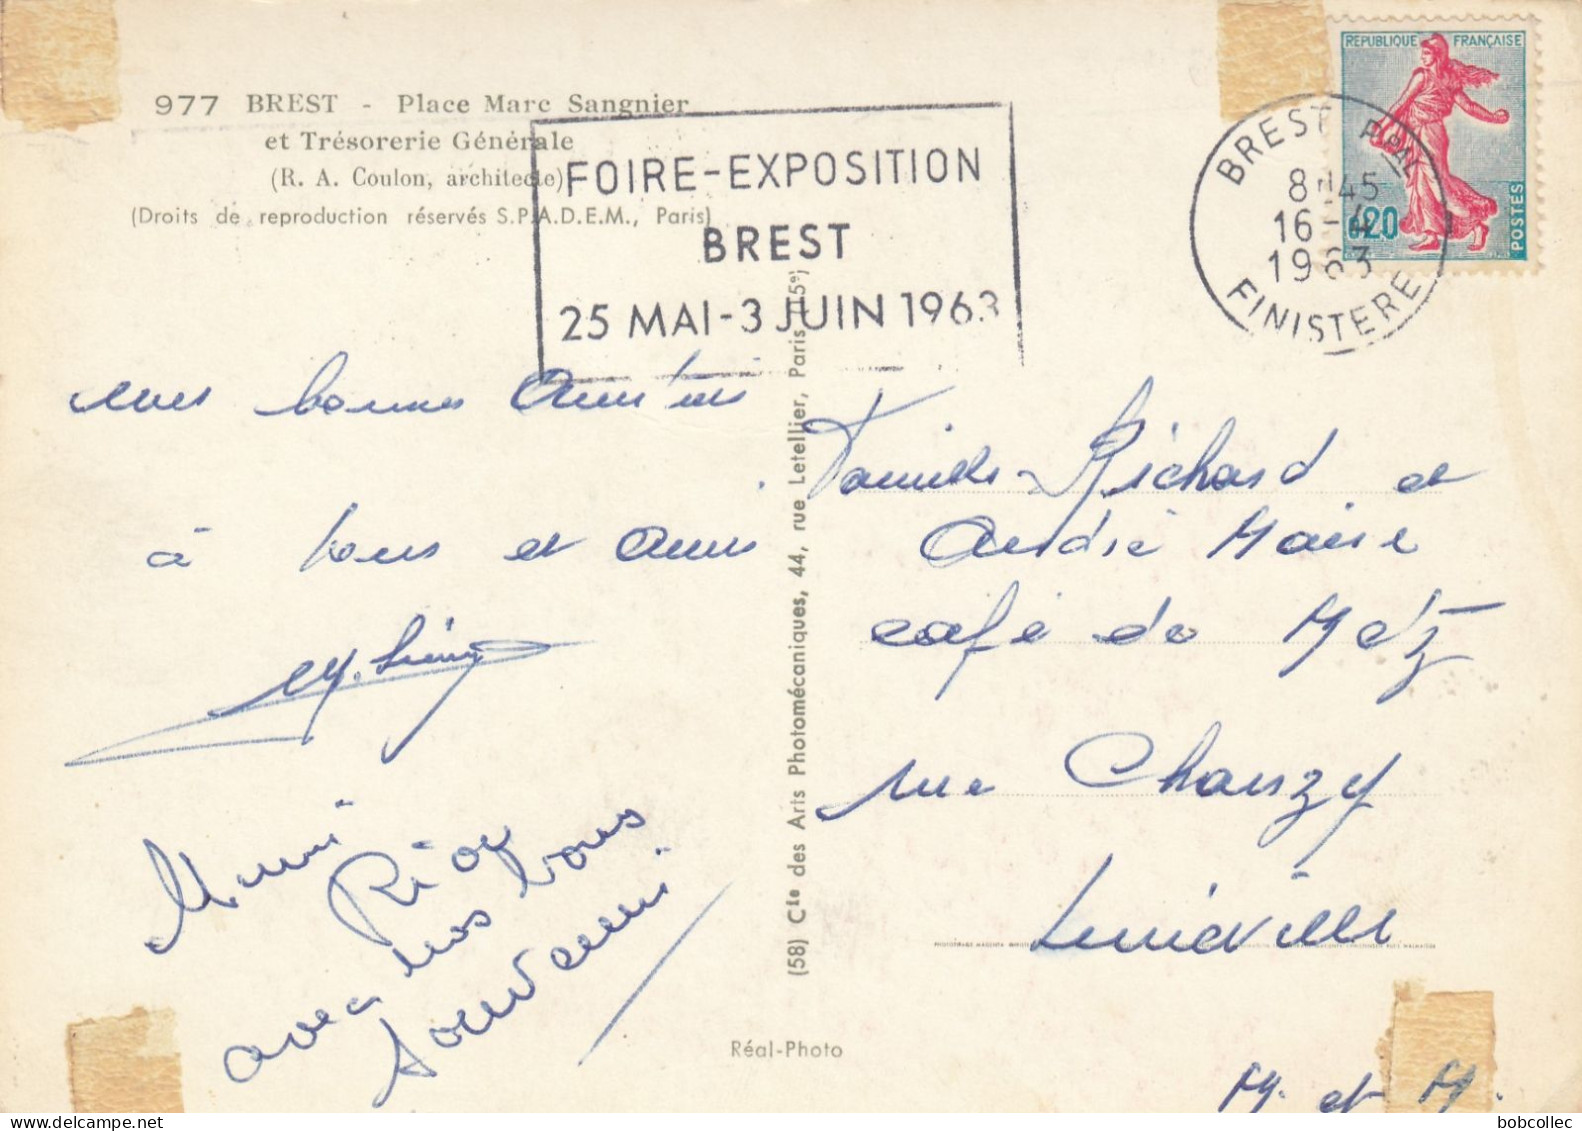 977 BREST - Place Marc Sangnier
et Trésorerie Générale
(R. A. Coulon, architecte)
(Droits de reproduction réservés S.P.A.D.E.M., Paris)
FOIRE-EXPOSITION
BREST
25 MAI-3 JUIN 1963
BREST PPAL
8H45
16-4
1963
FINISTERE
REPUBLIQUE FRANÇAISE
0,20
POSTES
bonnes Amitiés
à tous et amis
avec nos bons
souvenirs
(58) Cie des Arts Photomécaniques, 44, rue Letellier, Paris (15e)
Famille Richard et
André Maire
café de Metz
rue Chanzy
Lunéville
Réal-Photo
M. et M.
bobcollec